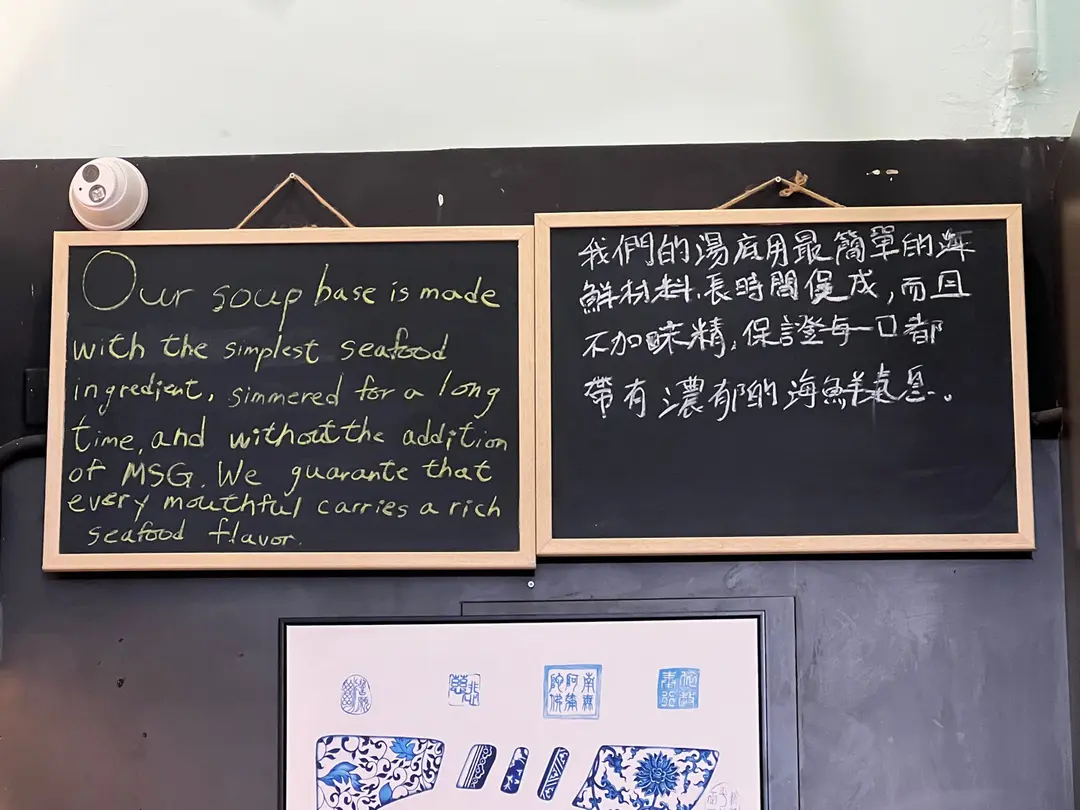 Our soup base is made
with the simplest seafood
ingredient, simmered for a long
time, and without the addition
of MSG. We guarante that
every mouthful carries a rich
seafood flavor.
我們的湯底用最簡單的海
鮮材料,長時間煲成,而且
不加味精,保證每一口都
帶有濃郁的海鮮氣息。
慈悲
南無
阿彌
陀佛